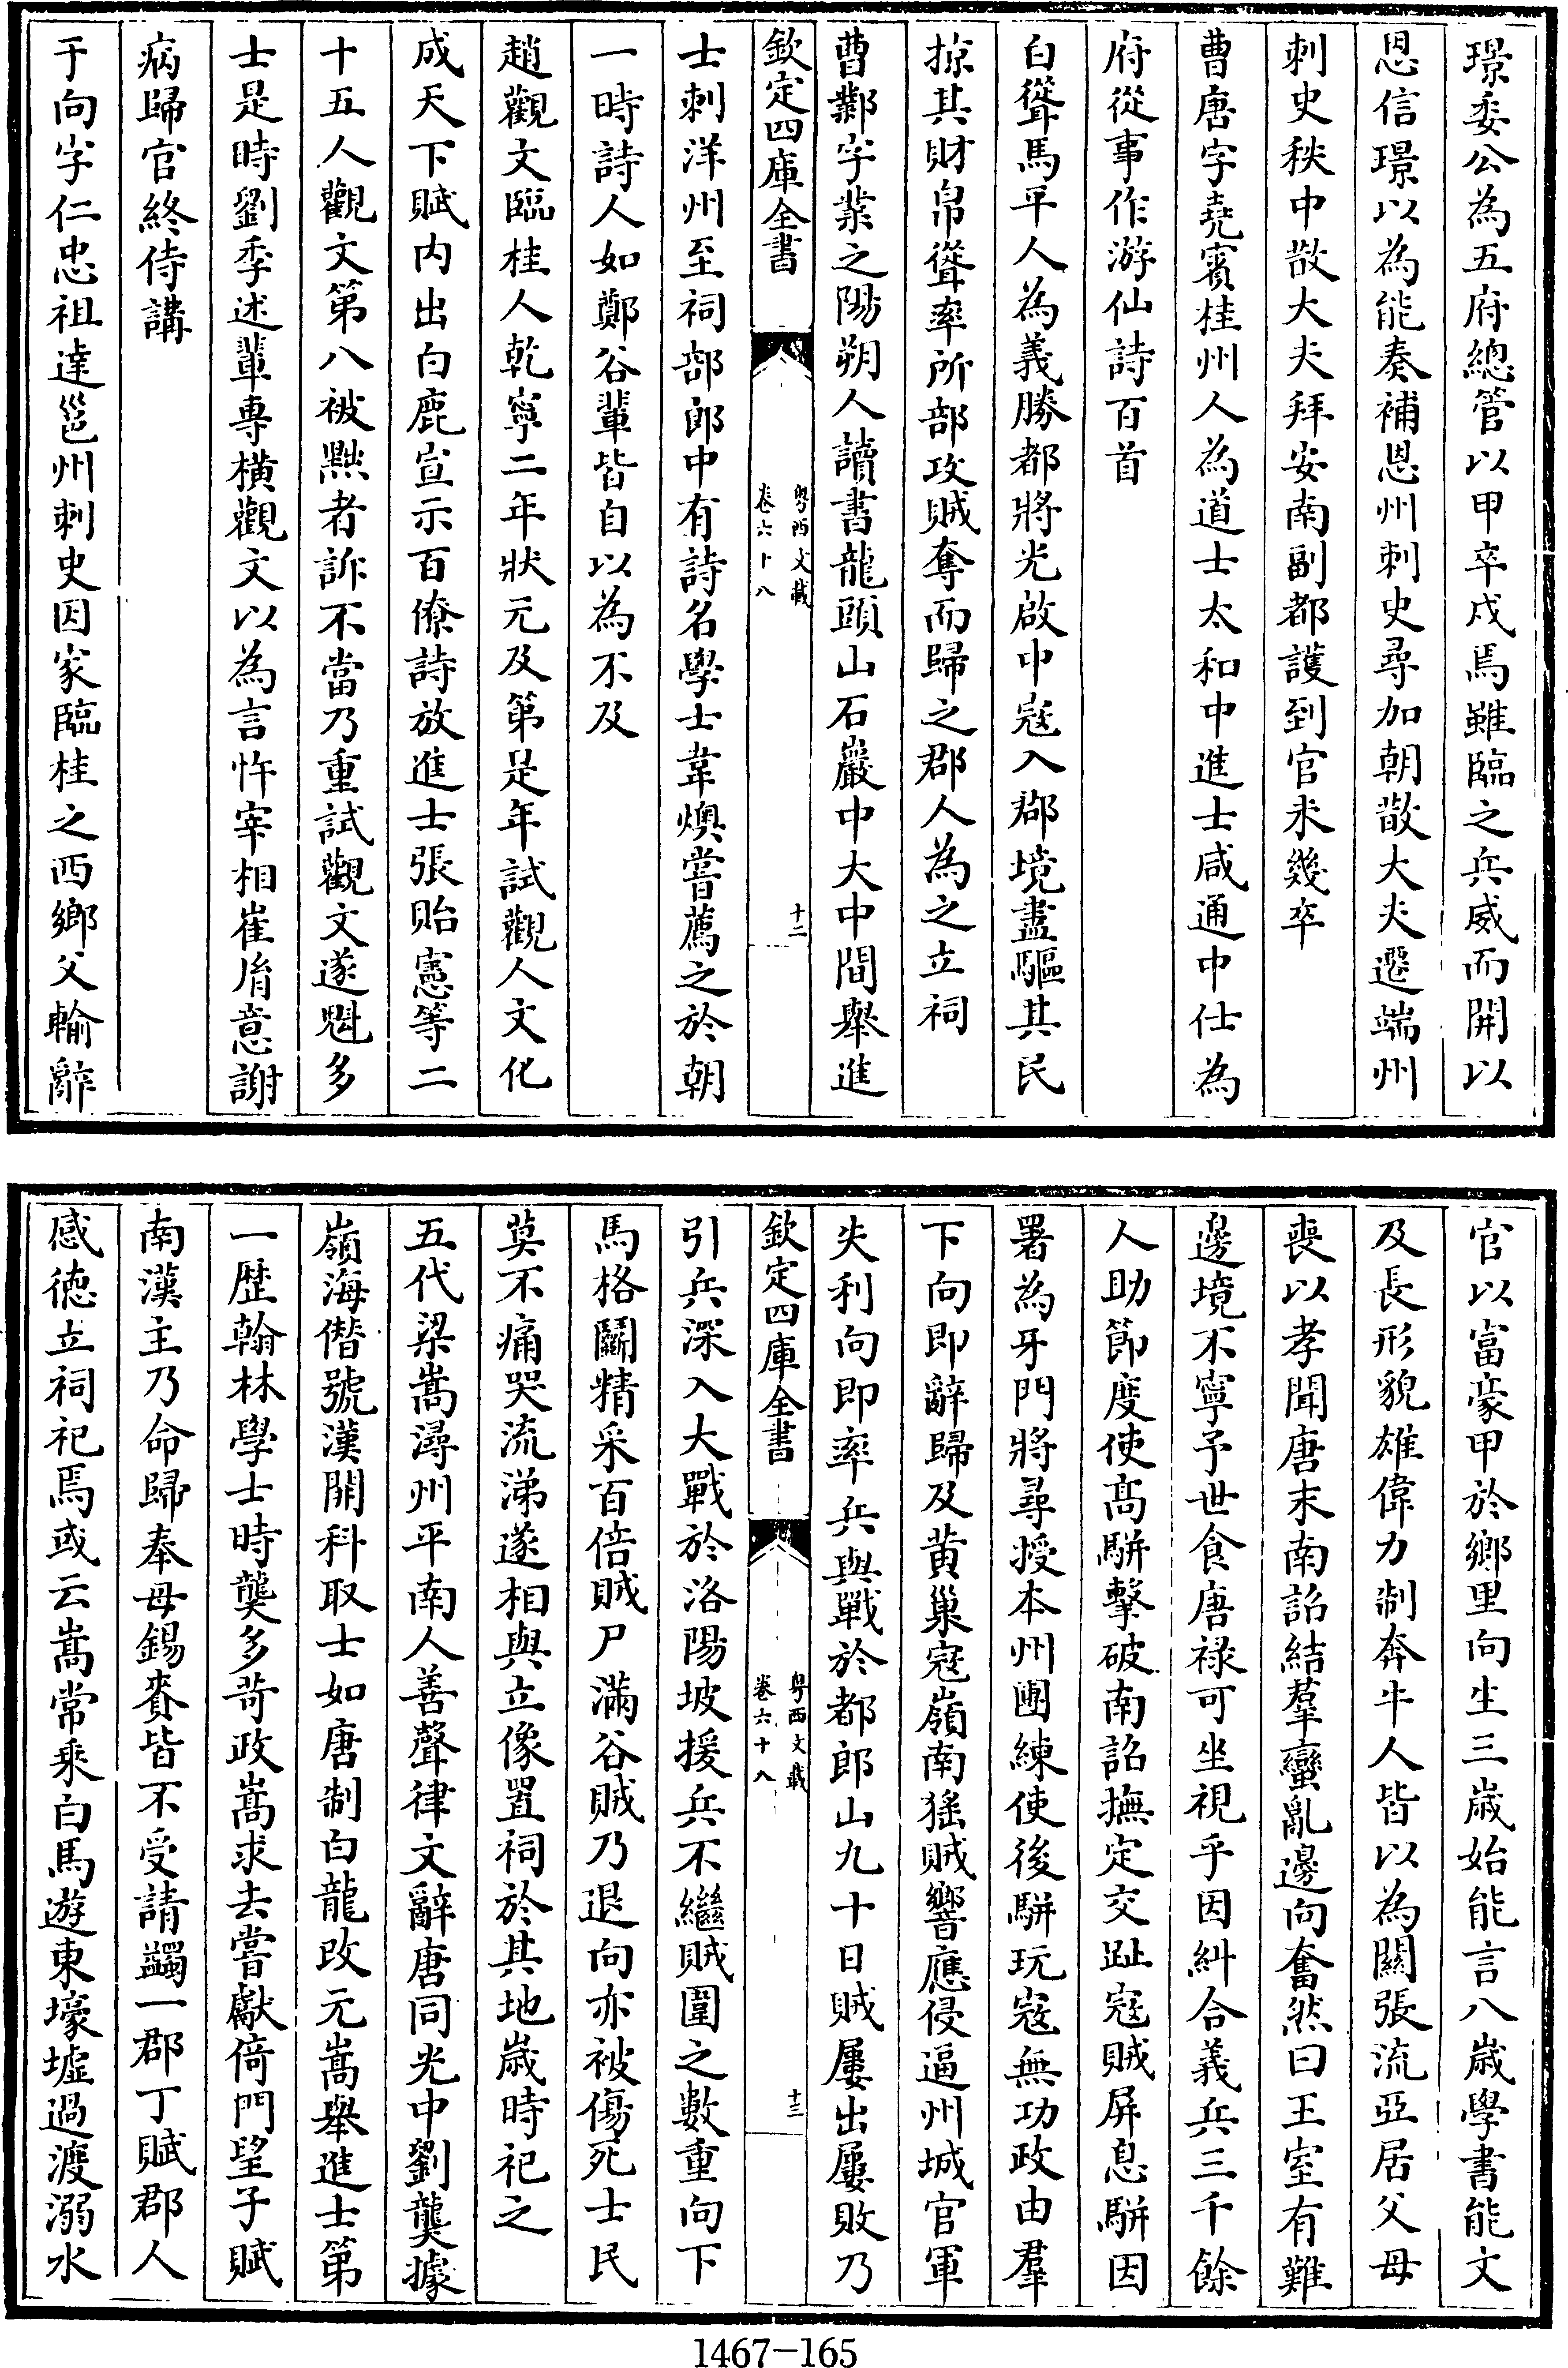 璟委公為五府總管以甲卒戍焉雖臨之兵威而開以
恩信璟以為能奏補恩州刺史尋加朝散大夫遷端州
刺史秩中散大夫拜安南副都護到官未幾卒
曹唐字堯賓桂州人為道士太和中進士咸通中仕為
府從事作游仙詩百首
白聳馬平人為義勝都將光啟中寇入郡境盡驅其民
掠其財帛聳率所部攻賊奪而歸之郡人為之立祠
曹鄴字業之陽朔人讀書龍頭山石巖中大中間舉進
欽定四庫全書
粵西文載
卷六十八
十二
士刺洋州至祠部郎中有詩名學士韋燠嘗薦之於朝
一時詩人如鄭谷輩皆自以為不及
趙觀文臨桂人乾寧二年狀元及第是年試觀人文化
成天下賦内出白鹿宣示百僚詩放進士張貽憲等二
十五人觀文第八被黜者訴不當乃重試觀文遂魁多
士是時劉季述輩專橫觀文以為言忤宰相崔胤意謝
病歸官終侍講
于向字仁忠祖達邕州刺史因家臨桂之西鄉父輸辭
官以富豪甲於鄉里向生三歲始能言八歲學書能文
及長形貌雄偉力制奔牛人皆以為關張流亞居父母
喪以孝聞唐末南詔結羣蠻亂邊向奮然曰王室有難
邊境不寧予世食唐祿可坐視乎因糾合義兵三千餘
人助節度使高駢擊破南詔撫定交趾寇賊屏息駢因
署為牙門將尋授本州團練使後駢玩寇無功政由羣
下向即辭歸及黄巢寇嶺南猺賊響應侵逼州城官軍
失利向即率兵與戰於都郎山九十日賊屢出屢敗乃
欽定四庫全書
粵西文載
卷六十八
十三
引兵深入大戰於洛陽坡援兵不繼賊圍之數重向下
馬格鬭精采百倍賊尸滿谷賊乃退向亦被傷死士民
莫不痛哭流涕遂相與立像置祠於其地歲時祀之
五代梁嵩潯州平南人善聲律文辭唐同光中劉龑據
嶺海僭號漢開科取士如唐制白龍改元嵩舉進士第
一歷翰林學士時龑多苛政嵩求去嘗獻倚門望子賦
南漢主乃命歸奉母錫賚皆不受請蠲一郡丁賦郡人
感徳立祠祀焉或云嵩常乘白馬遊東壕墟過渡溺水
1467-165